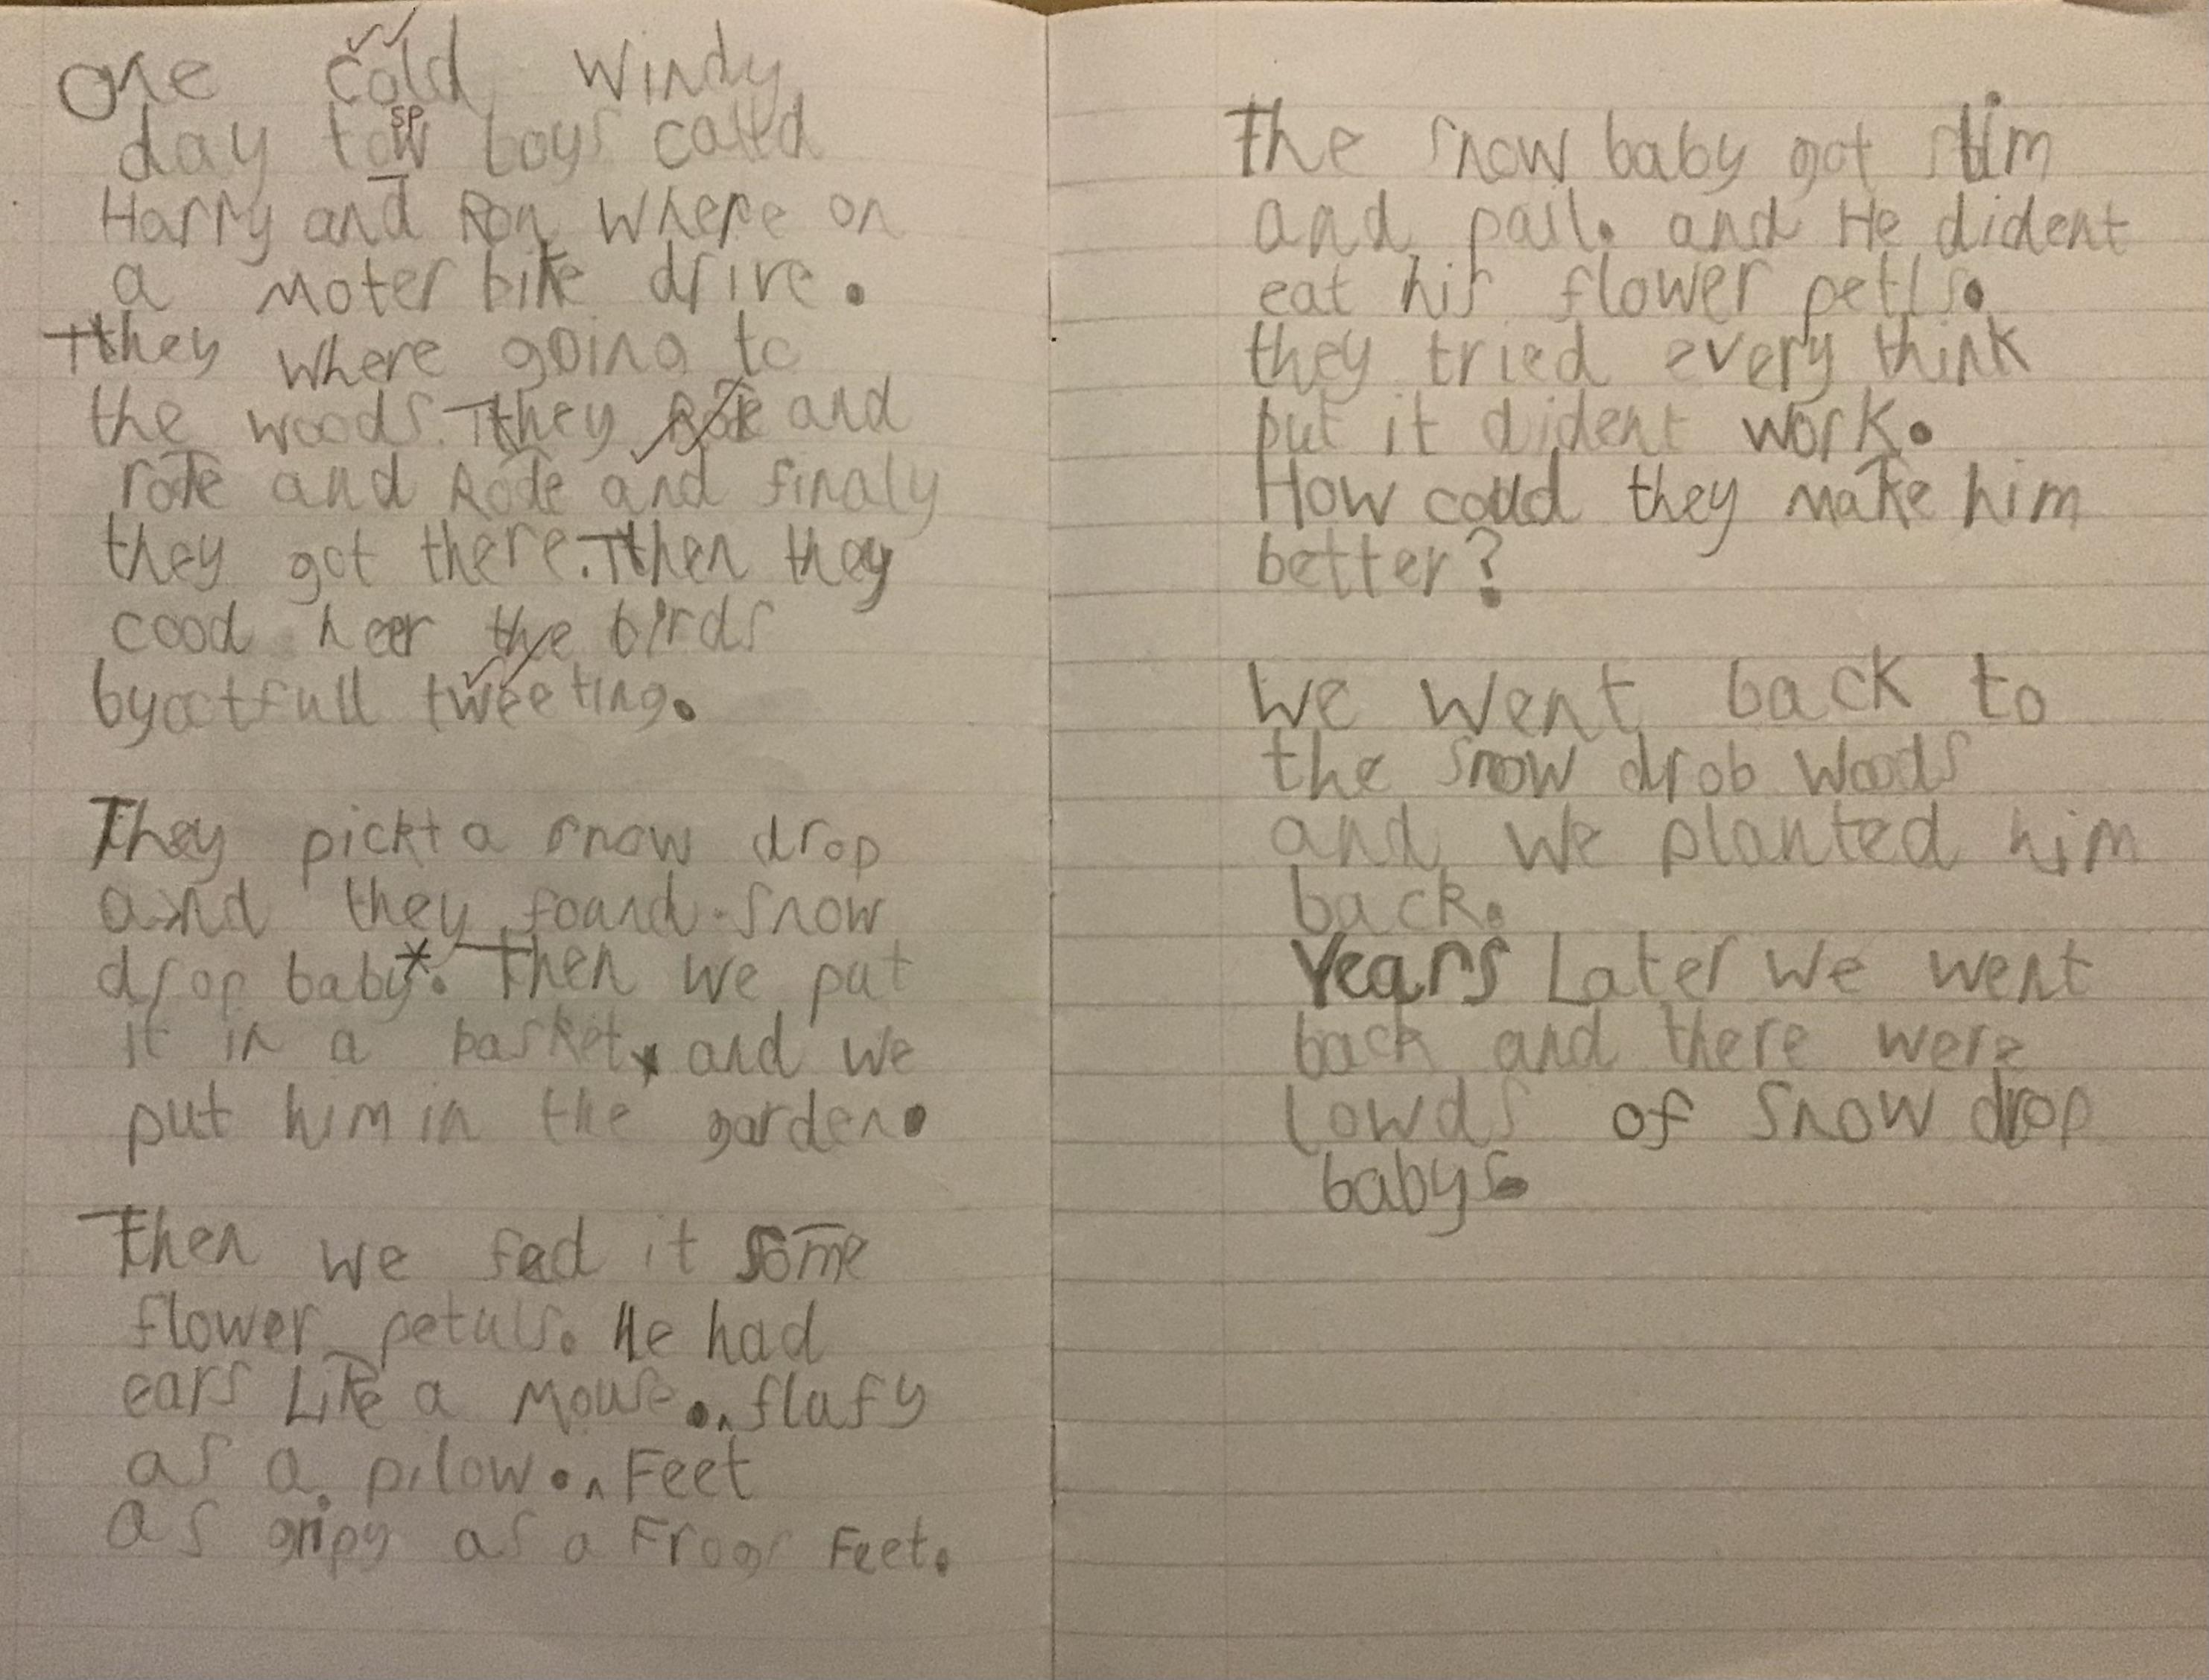 One cold windy
day tow boys calld
Harry and Ron where on
a moter bike drive.
They where going to
the woods. They Rode and
rode and Rode and finaly
they got there. Then they
cood heer the birds
byootfull tweeting.
They pickt a snow drop
and they found snow
drop baby*. Then we put
it in a basket and we
put him in the garden.
Then we fed it some
flower petuls. He had
ears Like a Mouse. flufy
as a pilow. Feet
as gripy as a Frogs Feet.
The snow baby got slim
and pail. and He dident
eat his flower petls.
they tried every think
but it dident work.
How could they make him
better?
We went back to
the snow drob woods
and we planted him
back.
Years Later we went
back and there were
lowds of snow drop
babys.